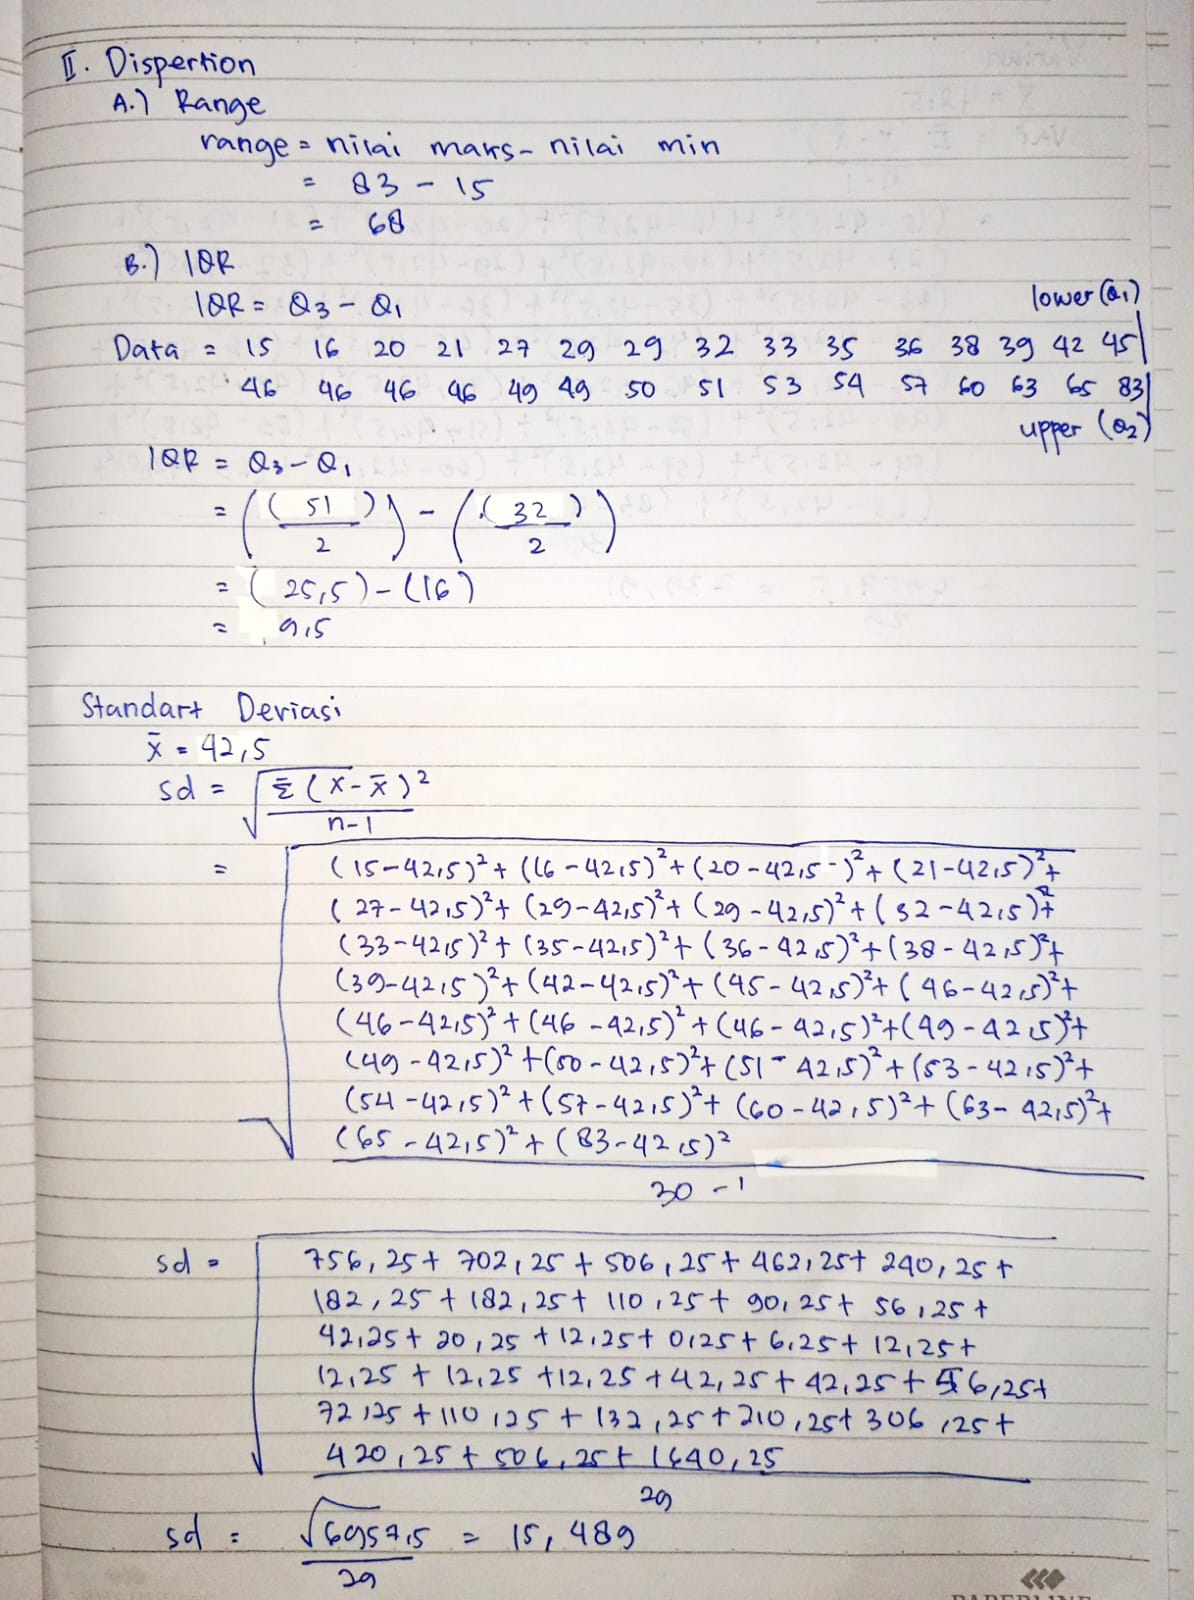 II. Dispertion
A.) Range
range = nilai maks - nilai min
= 83 - 15
= 68
B.) IQR
IQR = Q3 - Q1
lower (Q1)
Data = 15 16 20 21 27 29 29 32 33 35 36 38 39 42 45
46 46 46 46 49 49 50 51 53 54 57 60 63 65 83
upper (Q2)
IQR = Q3 - Q1
= ((51)/2) - ((32)/2)
= (25,5) - (16)
= 9,5
Standart Deviasi
x̄ = 42,5
sd = √Σ(x-x̄)²/n-1
= (15-42,5)² + (16-42,5)² + (20-42,5)² + (21-42,5)² +
(27-42,5)² + (29-42,5)² + (29-42,5)² + (32-42,5)² +
(33-42,5)² + (35-42,5)² + (36-42,5)² + (38-42,5)² +
(39-42,5)² + (42-42,5)² + (45-42,5)² + (46-42,5)² +
(46-42,5)² + (46-42,5)² + (46-42,5)² + (49-42,5)² +
(49-42,5)² + (50-42,5)² + (51-42,5)² + (53-42,5)² +
(54-42,5)² + (57-42,5)² + (60-42,5)² + (63-42,5)² +
(65-42,5)² + (83-42,5)²
30 - 1
sd = 756,25 + 702,25 + 506,25 + 462,25 + 240,25 +
182,25 + 182,25 + 110,25 + 90,25 + 56,25 +
42,25 + 20,25 + 12,25 + 0,25 + 6,25 + 12,25 +
12,25 + 12,25 + 12,25 + 42,25 + 42,25 + 56,25 +
72,25 + 110,25 + 132,25 + 210,25 + 306,25 +
420,25 + 506,25 + 1640,25
29
sd = √6957,5/29 = 15,489
PAPERLINE